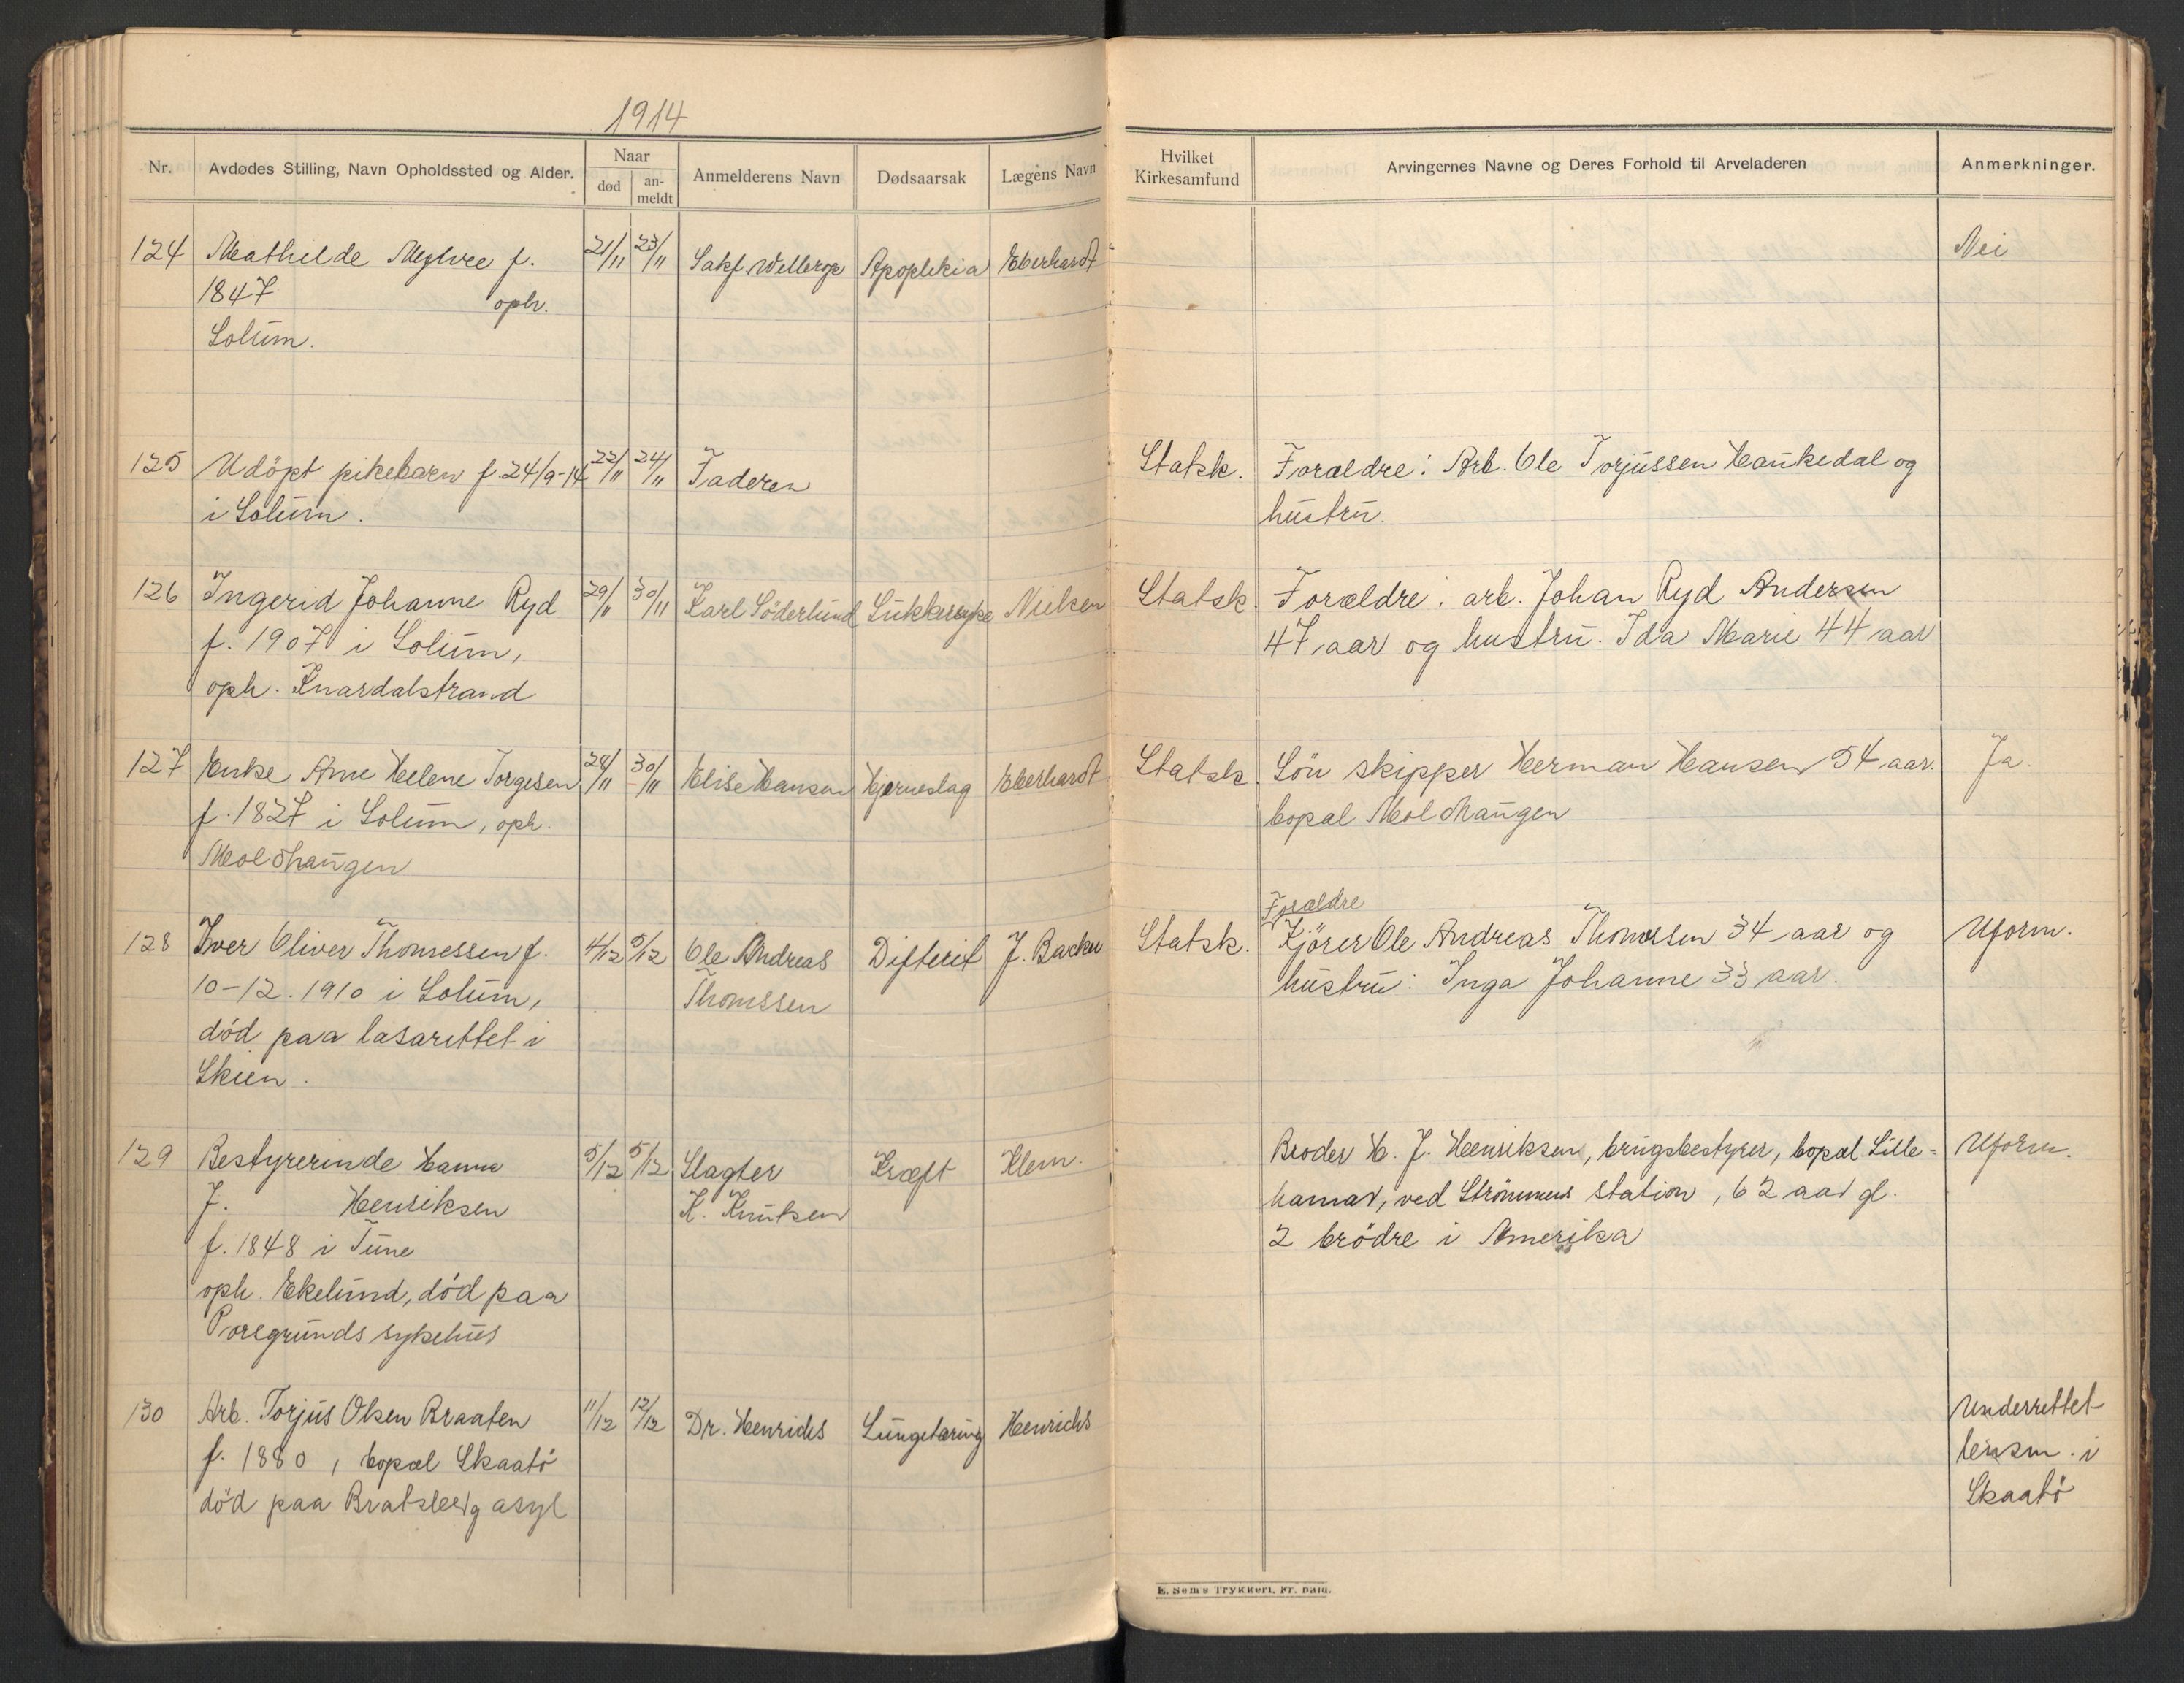 1914
Nr. Avdødes Stilling, Navn Opholdssted og Alder. Naar død an-meldt Anmelderens Navn Dødsaarsak Lægens Navn
Hvilket Kirkesamfund Arvingernes Navne og Deres Forhold til Arveladeren Anmerkninger.
124 Mathilde f. 21/11 23/11 Sakf. Wellerop Apoplekia Eberhardt Nei
1847 oph.
Solum.
125 Udöpt pikebarn f. 24/9-14 22/11 24/11 Faderen Statsk. Forældre: Arb. Ole Torjussen Haukedal og
i Solum. hustru.
126 Ingerid Johanne Ryd 29/11 30/11 Karl Söderlund Sukkersyke Nielsen Statsk. Forældre: arb. Johan Ryd Andersen
f. 1907 i Solum, 47 aar og hustru. Ida Marie 44 aar
oph. Knardalstrand
127 Enke Ane Helene Torgesen 28/11 30/11 Elise Hansen Hjerneslag Eberhardt Statsk. Sön skipper Herman Hansen 54 aar. Ja.
f. 1827 i Solum, oph. bopæl Moldhaugen
Moldhaugen
Forældre
128 Iver Oliver Thomessen f. 4/12 5/12 Ole Andreas Difterit J. Backer Statsk. Kjörer Ole Andreas Thomssen 34 aar og Uform.
10-12.1910 i Solum, Thomssen hustru: Inga Johanne 33 aar.
död paa lasarettet i
Skien.
129 Bestyrerinde Hanna 5/12 5/12 Slagter Kræft Klem. Broder H. J. Henriksen, brugsbestyrer, bopæl Lille= Uform.
J. Henriksen K. Knutsen hamar, ved Strömmens station, 62 aar gl.
f. 1848 i Tune 2 brödre i Amerika
oph. Ekelund, död paa
Porsgrunds sykehus
130 Arb. Torjus Olsen Braaten 11/12 12/12 Dr. Henrichs Lungetæring Henrichs Underrettet
f. 1880, bopæl Skaatö lensm. i
död paa Bratsberg asyl Skaatö
E. Sems Trykkeri, Fr. hald.